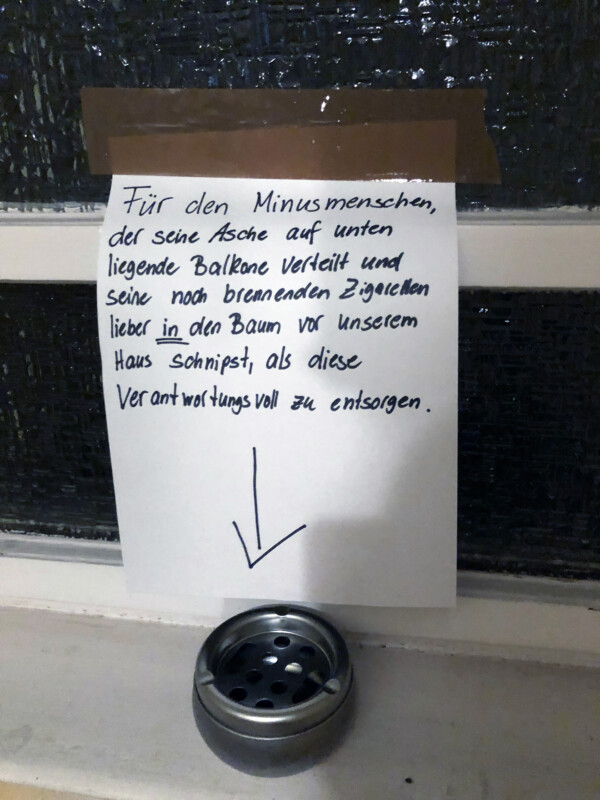 Für den Minusmenschen,
der seine Asche auf unten
liegende Balkone verteilt und
seine noch brennenden Zigaretten
lieber in den Baum vor unserem
Haus schnipst, als diese
Verantwortungsvoll zu entsorgen.